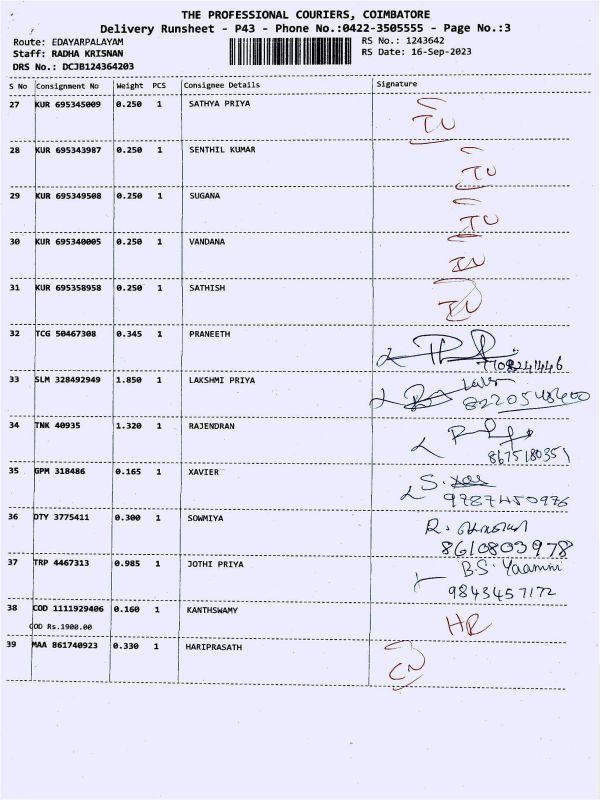 THE PROFESSIONAL COURIERS, COIMBATORE
Delivery Runsheet - P43 - Phone No.:0422-3505555 - Page No.:3
Route: EDAYARPALAYAM RS No.: 1243642
Staff: RADHA KRISNAN RS Date: 16-Sep-2023
DRS No.: DCJB124364203
S No Consignment No Weight PCS Consignee Details Signature
27 KUR 695345009 0.250 1 SATHYA PRIYA
28 KUR 695343987 0.250 1 SENTHIL KUMAR
29 KUR 695349508 0.250 1 SUGANA
30 KUR 695340005 0.250 1 VANDANA
31 KUR 695358958 0.250 1 SATHISH
32 TCG 50467308 0.345 1 PRANEETH
7708241446
33 SLM 328492949 1.850 1 LAKSHMI PRIYA
8220548600
34 TNK 40935 1.320 1 RAJENDRAN
8675180351
35 GPM 318486 0.165 1 XAVIER
9787450976
36 DTY 3775411 0.300 1 SOWMIYA R.
8610803978
37 TRP 4467313 0.985 1 JOTHI PRIYA B.S. Yaamini
9843457172
38 COD 1111929406 0.160 1 KANTHSWAMY HR
COD Rs.1900.00
39 MAA 861740923 0.330 1 HARIPRASATH CN